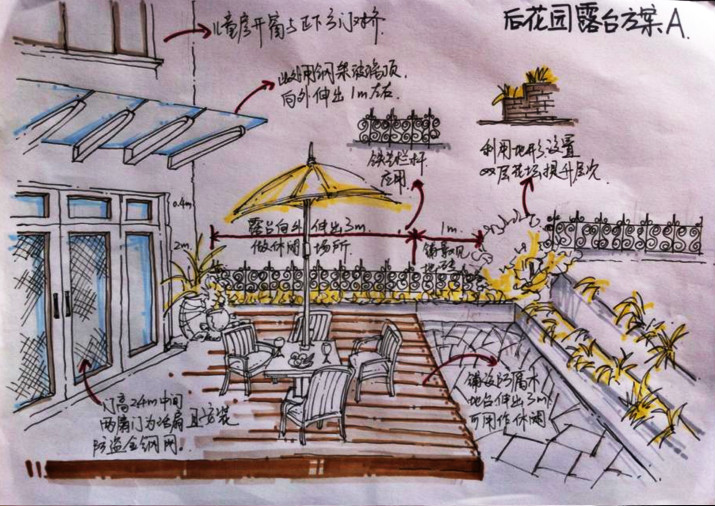 后花园露台方案A.
儿童房开窗与正下方门对齐.
此处用钢架玻璃顶,
向外伸出1m左右.
铁艺栏杆
应用.
利用地形,设置
双层花坛提升层次.
0.4m.
2m.
露台向外伸出3m
做休闲场所
1m.
铺景观
门高2.4m中间
两扇门为活扇且安装
防盗金钢网.
铺设防腐木
地台伸出3m
可用作休闲